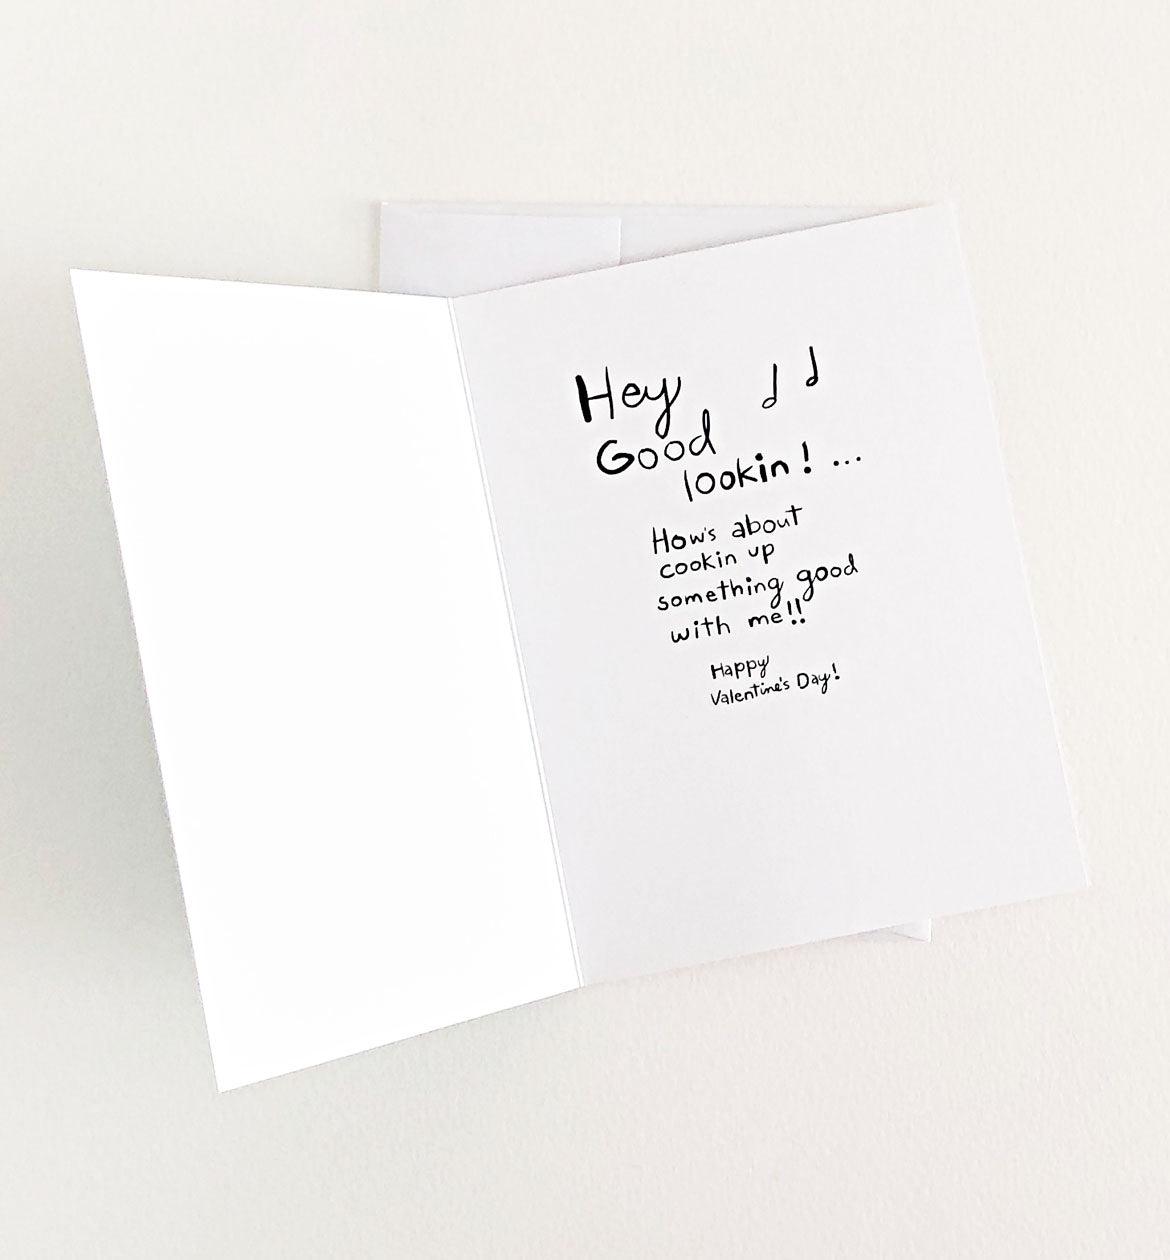 Hey
Good
lookin! ...
How's about
cookin up
something good
with me!!
Happy
Valentine's Day!